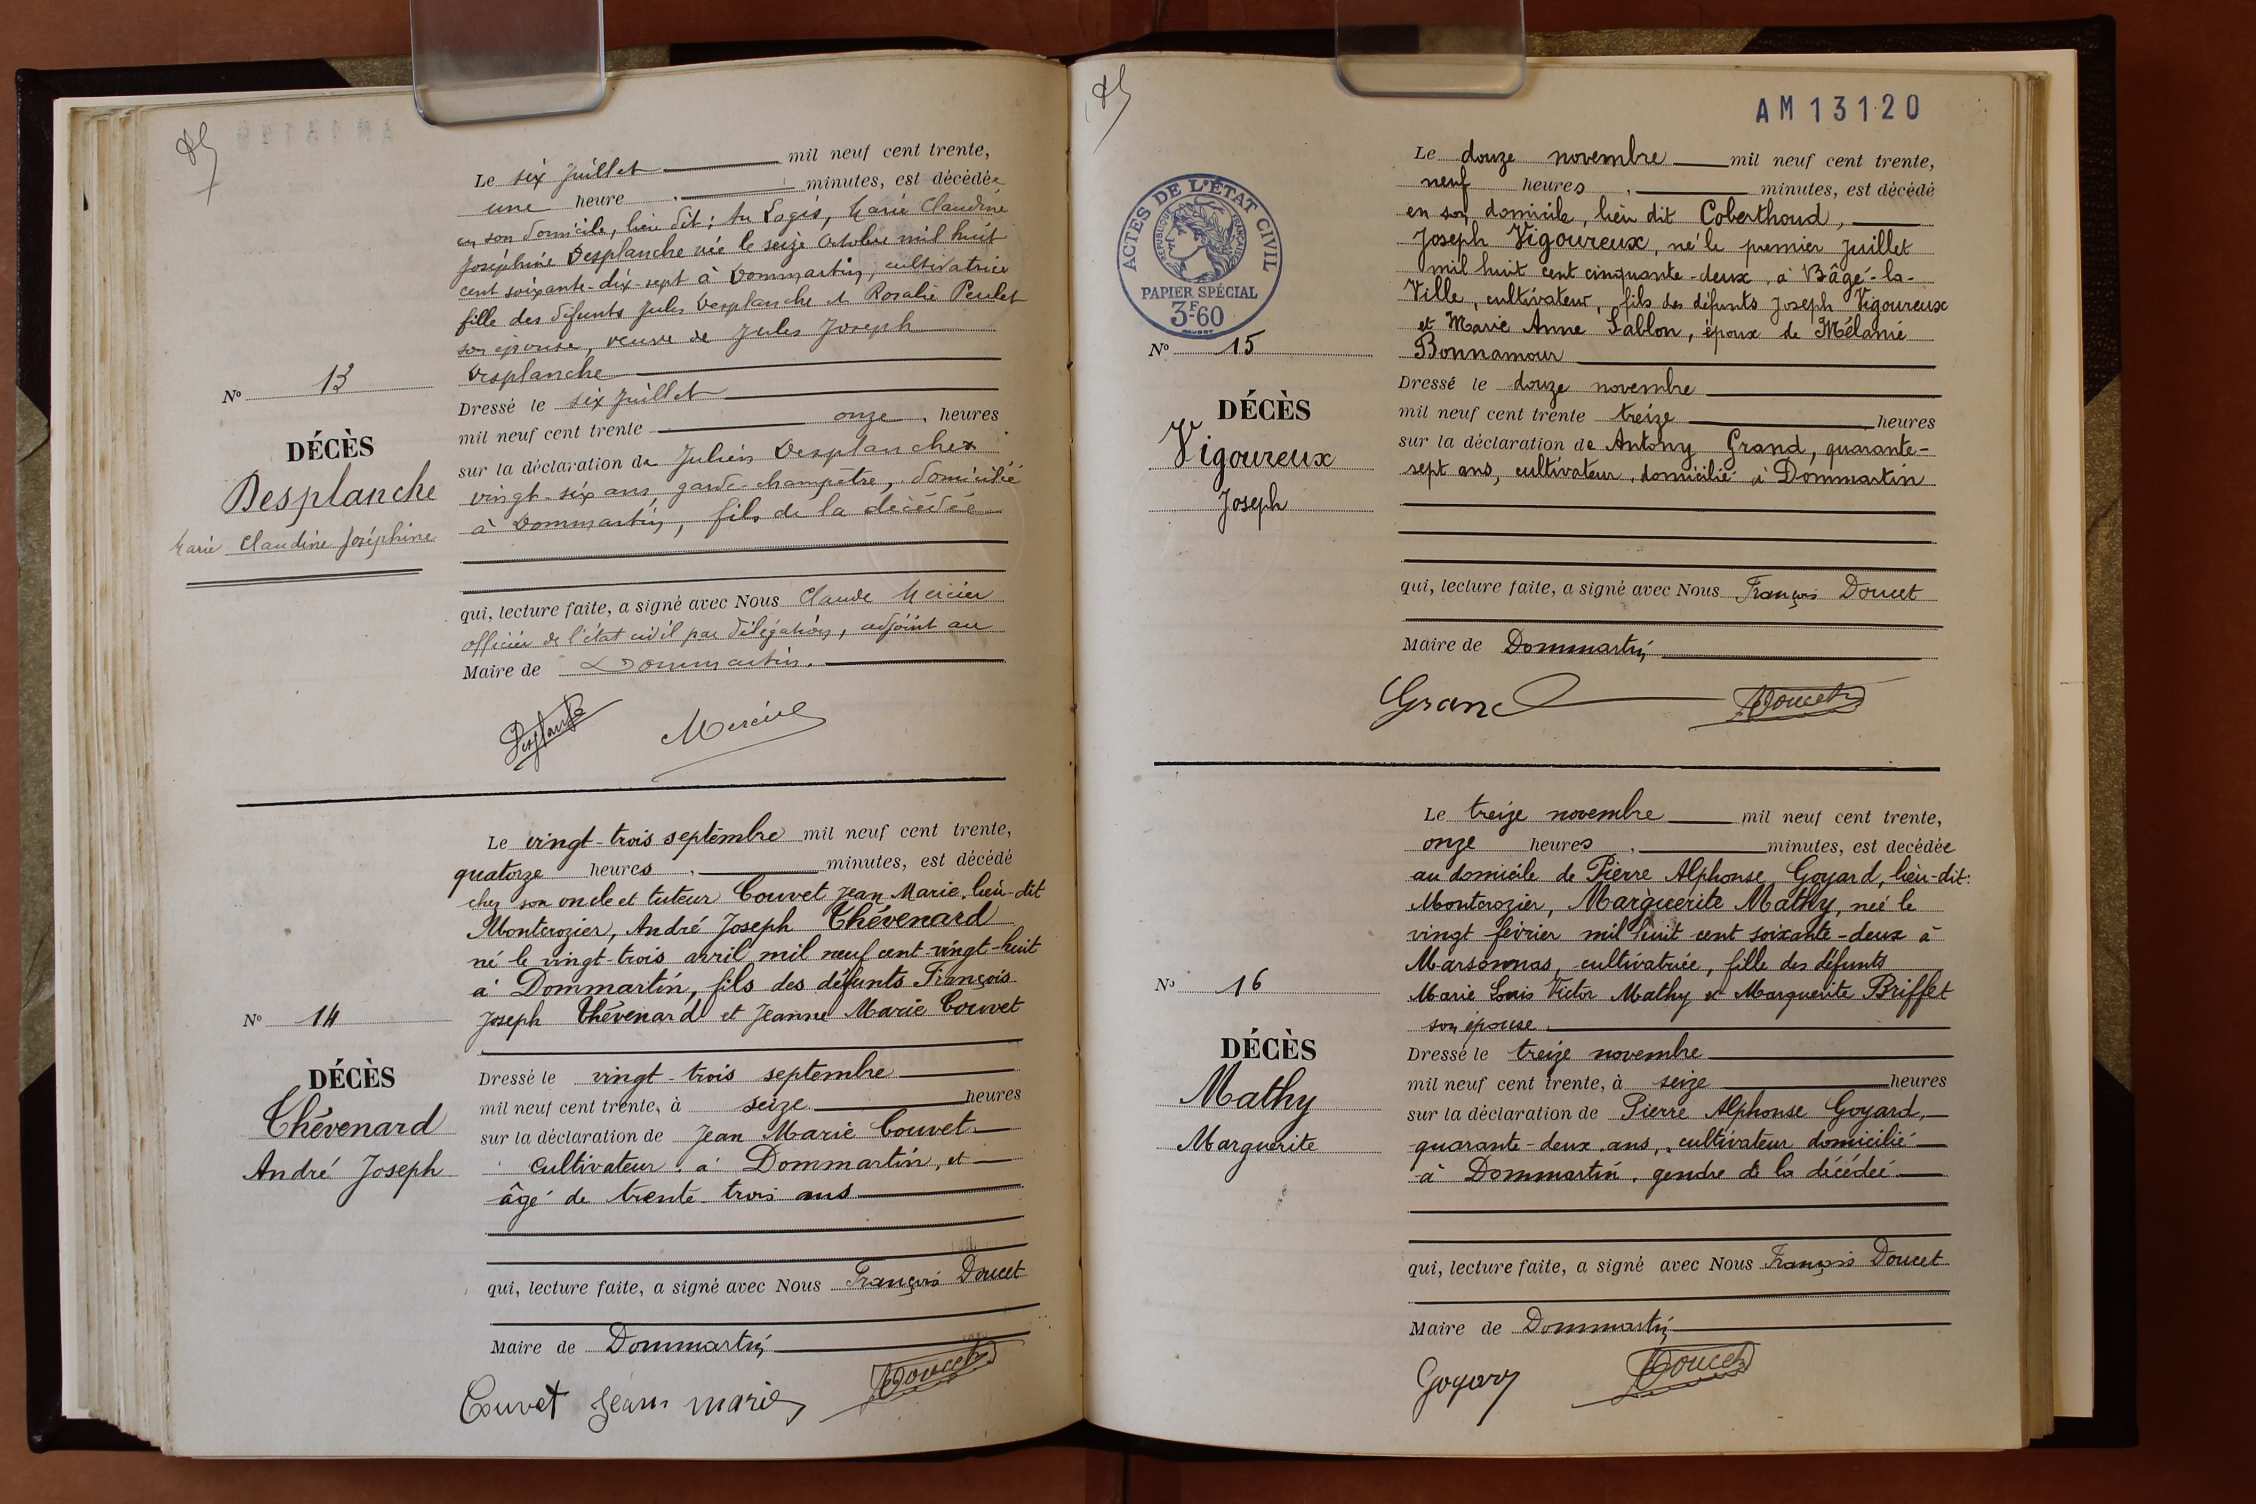 Le six Juillet mil neuf cent trente,
une heure minutes, est décédée
en son domicile, lieu dit : Au Logis, Marie Claudine
Joséphine Desplanche née le seize Octobre mil huit
cent soixante-dix-sept à Dommartin, cultivatrice
fille des défunts Jules Desplanche et Rosalie Penlet
son épouse, veuve de Jules Joseph
Desplanche
Nº 13
DÉCÈS
Desplanche
Marie Claudine Joséphine
Dressé le six Juillet
mil neuf cent trente onze heures
sur la déclaration de Julien Desplanche
vingt-six ans, garde-champêtre, domicilié
à Dommartin, fils de la décédée
qui, lecture faite, a signé avec Nous Claude Mercier
officier de l'état civil par délégation, adjoint au
Maire de Dommartin.
Desplanche Mercier
Le vingt-trois septembre mil neuf cent trente,
quatorze heures minutes, est décédé
chez son oncle et tuteur Couvet Jean Marie, lieu-dit
Montcrozier, André Joseph Thévenard
né le vingt-trois avril mil neuf cent-vingt-huit
à Dommartin, fils des défunts François
Joseph Thévenard et Jeanne Marie Couvet
Nº 14
DÉCÈS
Thévenard
André Joseph
Dressé le vingt-trois septembre
mil neuf cent trente, à seize heures
sur la déclaration de Jean Marie Couvet
cultivateur à Dommartin, et
âgé de trente-trois ans
qui, lecture faite, a signé avec Nous François Doucet
Maire de Dommartin
Couvet Jean marie Doucet
AM 13120
ACTES DE L'ÉTAT CIVIL
RÉPUBLIQUE FRANÇAISE
PAPIER SPÉCIAL
3F60
Le douze novembre mil neuf cent trente,
neuf heures minutes, est décédé
en son domicile, lieu dit Coberthoud,
Joseph Vigoureux, né le premier Juillet
mil huit cent cinquante-deux à Bâgé-la-
Ville, cultivateur, fils des défunts Joseph Vigoureux
et Marie Anne Sallon, époux de Mélanie
Bonnamour
Nº 15
DÉCÈS
Vigoureux
Joseph
Dressé le douze novembre
mil neuf cent trente treize heures
sur la déclaration de Antony Grand, quarante-
sept ans, cultivateur, domicilié à Dommartin
qui, lecture faite, a signé avec Nous François Doucet
Maire de Dommartin
Grand Doucet
Le treize novembre mil neuf cent trente,
onze heures minutes, est décédée
au domicile de Pierre Alphonse Goyard, lieu-dit:
Montcrozier, Marguerite Mathy, née le
vingt février mil huit cent soixante-deux à
Marsonnas, cultivatrice, fille des défunts
Marie Louis Victor Mathy et Marguerite Briffet
son épouse
Nº 16
DÉCÈS
Mathy
Marguerite
Dressé le treize novembre
mil neuf cent trente, à seize heures
sur la déclaration de Pierre Alphonse Goyard,
quarante-deux ans, cultivateur domicilié
à Dommartin, gendre de la décédée
qui, lecture faite, a signé avec Nous François Doucet
Maire de Dommartin
Goyard Doucet